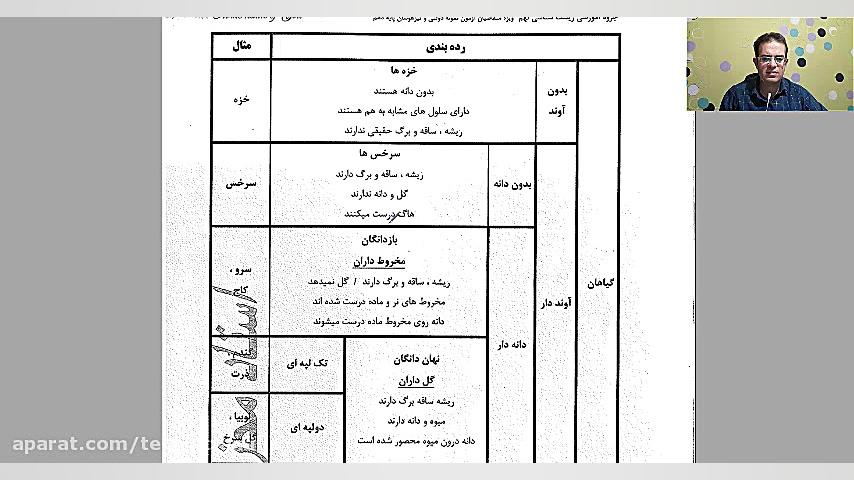 جزوه آموزشی زیست شناسی نهم ویژه متقاضیان آزمون نمونه دولتی و تیزهوشان پایه دهم
رده بندی
مثال
گیاهان
بدون آوند
خزه ها
بدون دانه هستند
دارای سلول های مشابه به هم هستند
ریشه ، ساقه و برگ حقیقی ندارند
خزه
آوند دار
بدون دانه
سرخس ها
ریشه ، ساقه و برگ دارند
گل و دانه ندارند
هاگ درست میکنند
سرخس
دانه دار
بازدانگان
مخروط داران
ریشه ، ساقه و برگ دارند / گل نمیدهد
مخروط های نر و ماده درست شده اند
دانه روی مخروط ماده درست میشوند
سرو ،
کاج
نهان دانگان
گل داران
ریشه ساقه برگ دارند
میوه و دانه دارند
دانه درون میوه محصور شده است
تک لپه ای
ذرت
دولپه ای
لوبیا ،
گل سرخ
aparat.com/te